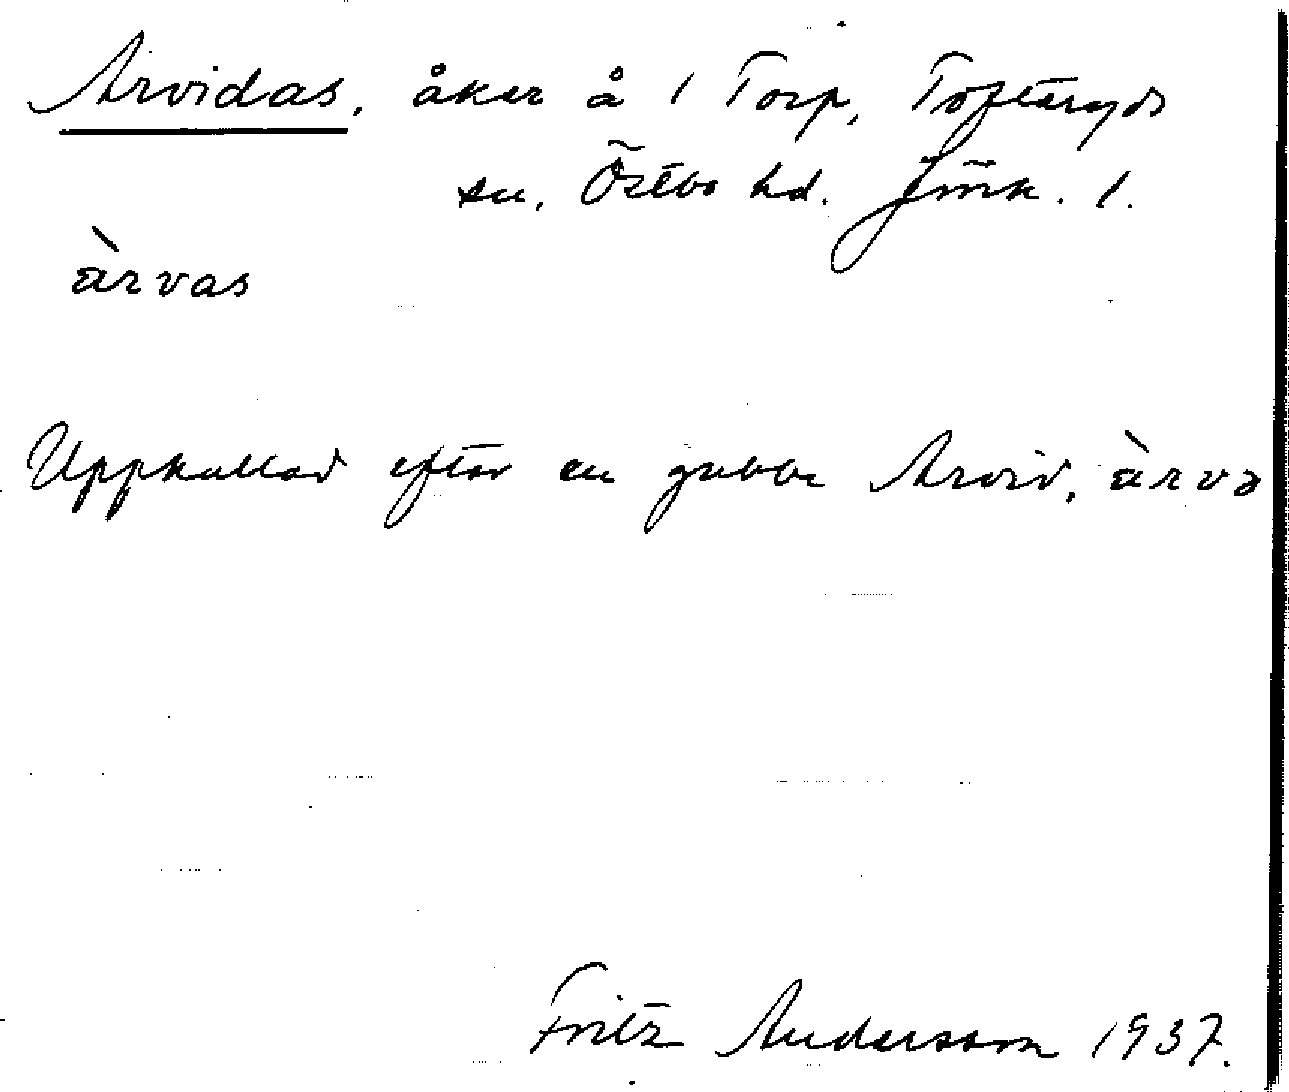 Arvidas, åker å 1 Torp, Tofteryds
sn, Östbo hd. Jönk. l.
àrvas
Uppkallad efter en gubbe Arvid, àrvə
Fritz Andersson 1937.